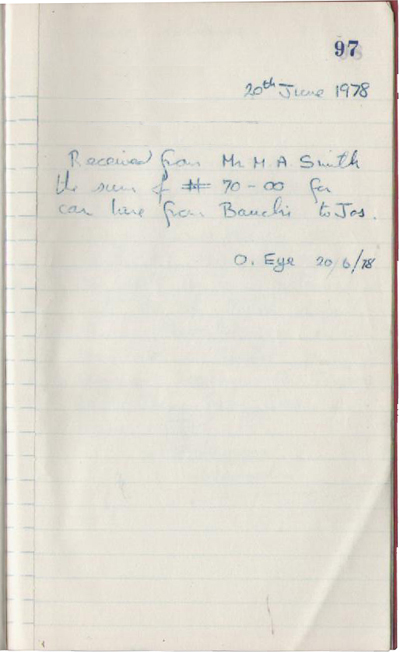 97
20th June 1978
Received from Mr M A Smith
the sum of ₦ 70-00 for
car hire from Bauchi to Jos.
O. Eye 20/6/78